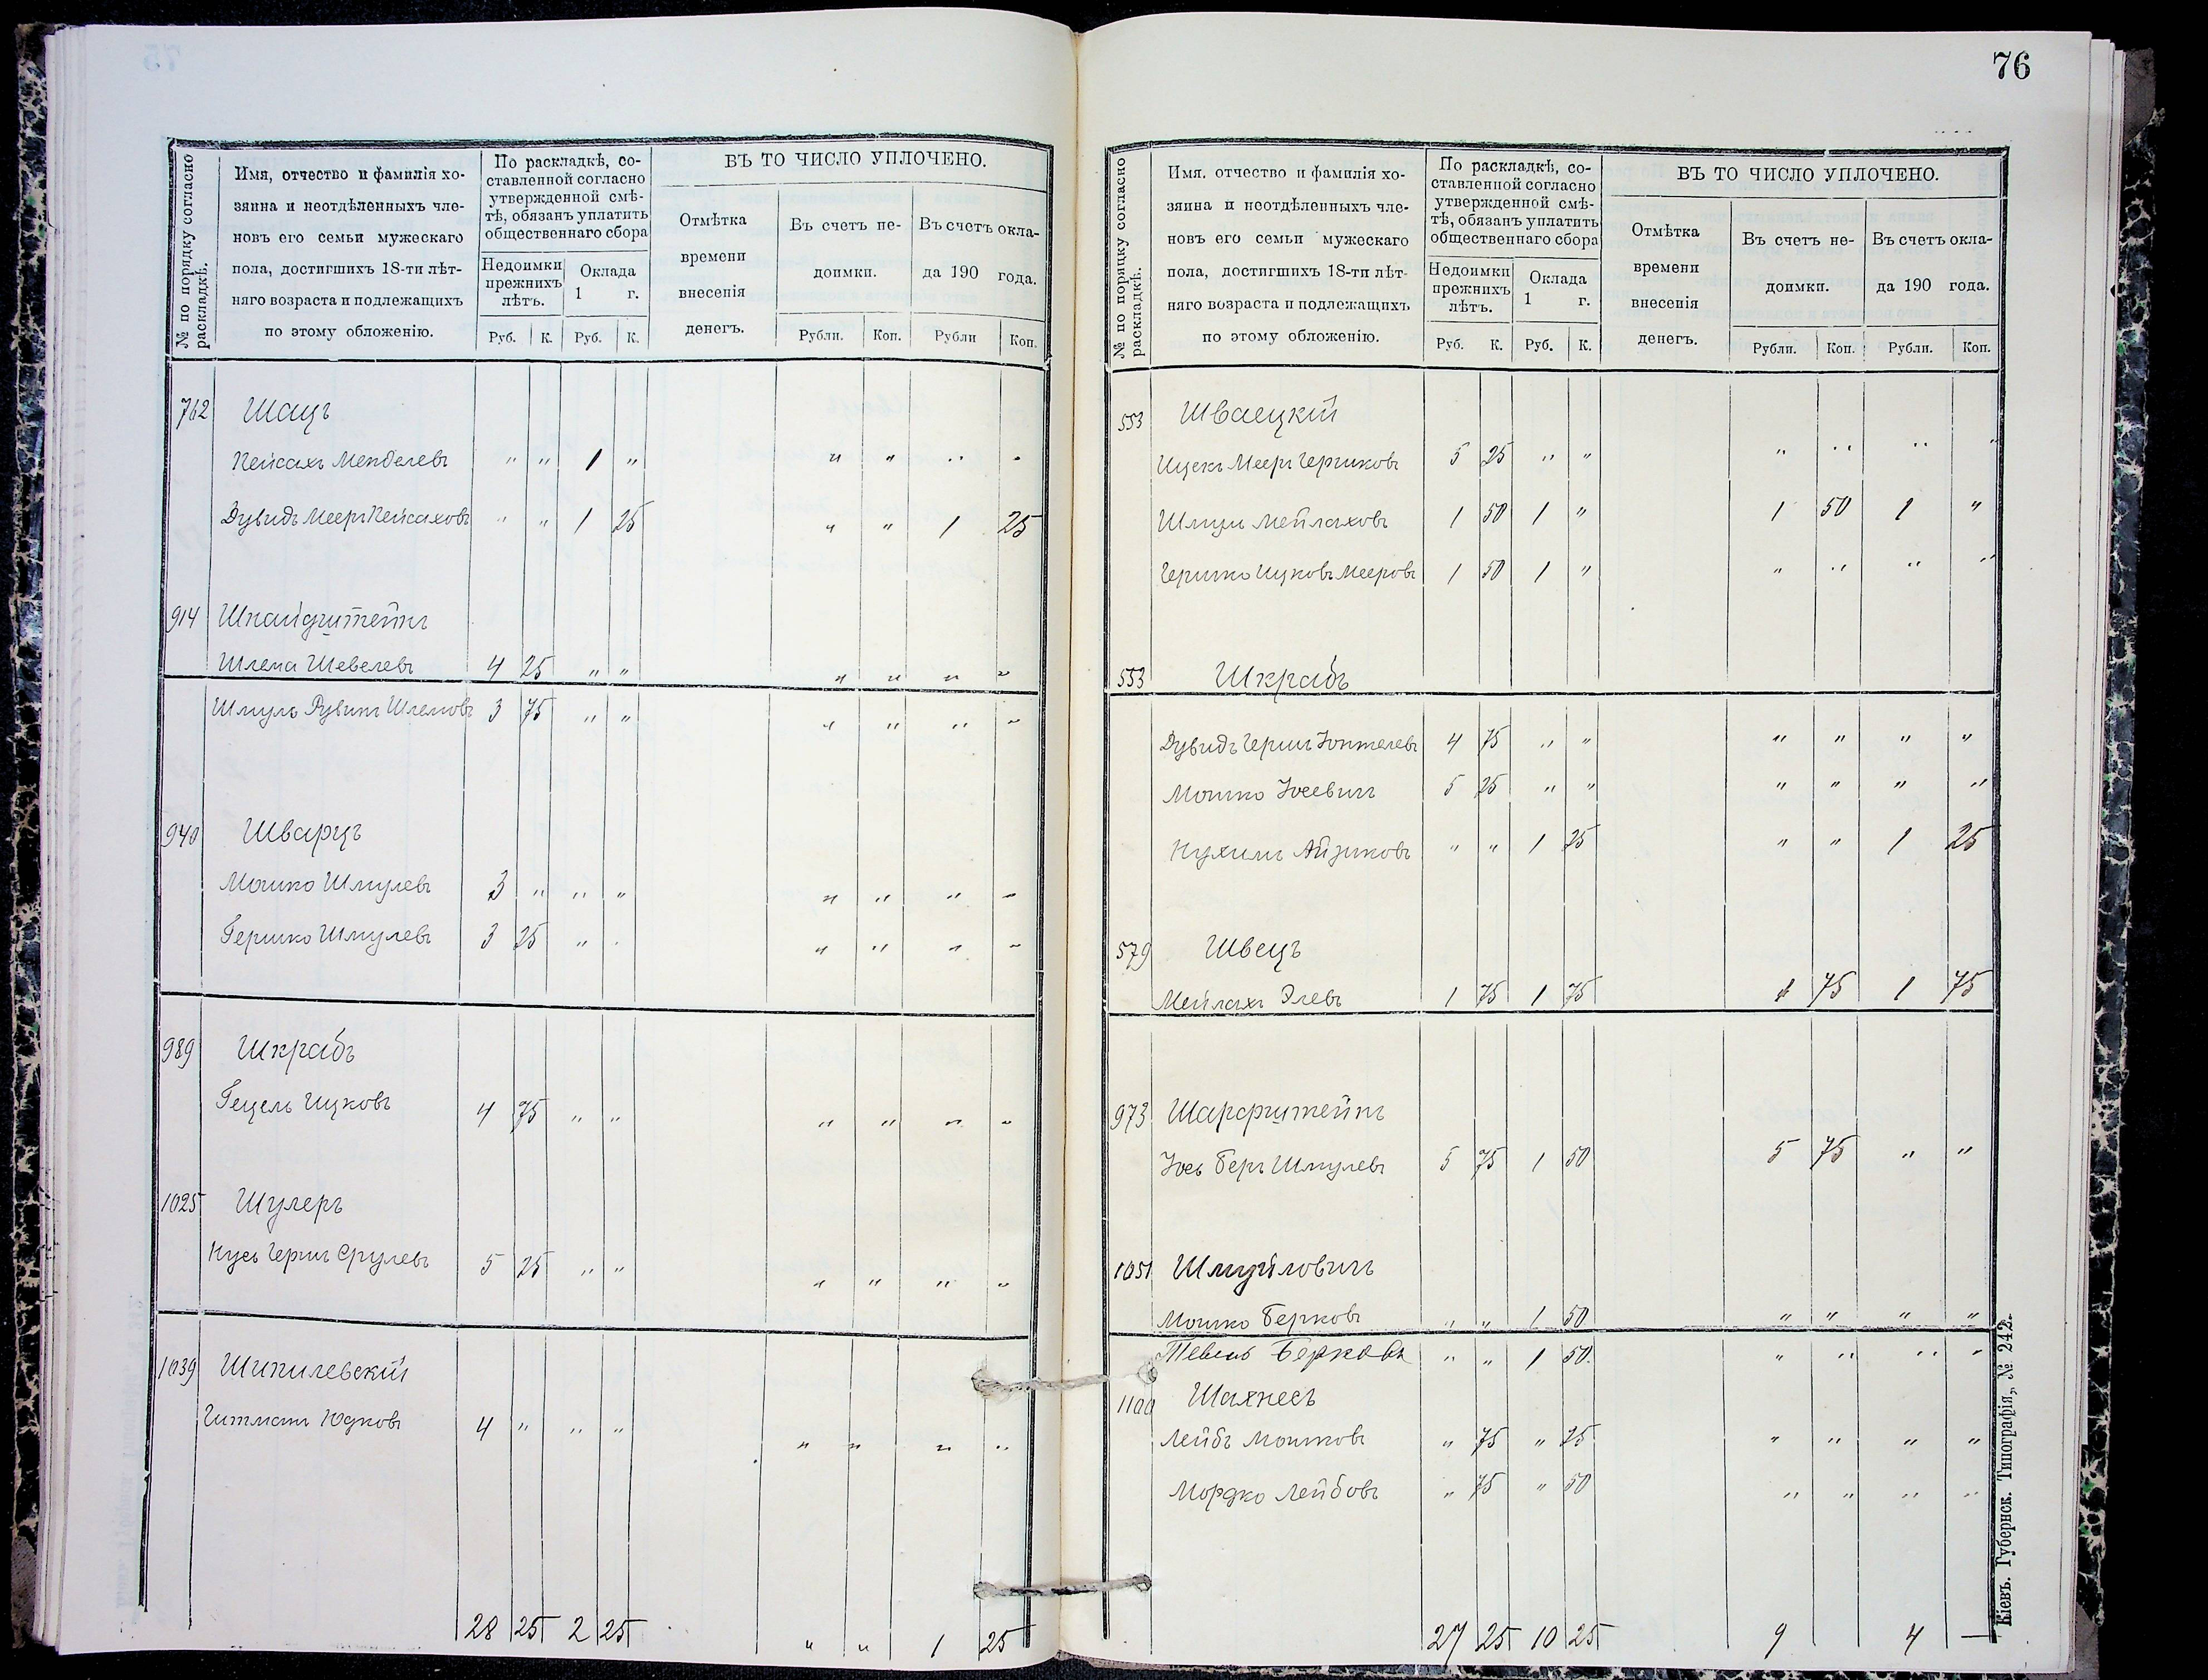 № по порядку согласно раскладкѣ.
Имя, отчество и фамилія хо-
зяина и неотдѣленныхъ чле-
новъ его семьи мужескаго
пола, достигшихъ 18-ти лѣт-
няго возраста и подлежащихъ
по этому обложенію.
По раскладкѣ, со-
ставленной согласно
утвержденной смѣ-
тѣ, обязанъ уплатить
общественнаго сбора
Недоимки прежнихъ лѣтъ.
Оклада 1 г.
Руб. К. Руб. К.
ВЪ ТО ЧИСЛО УПЛОЧЕНО.
Отмѣтка времени внесенія денегъ.
Въ счетъ не- доимки.
Въ счетъ окла- да 190 года.
Рубли. Коп. Рубли Коп.
762 Шацъ
Пейсахъ Менделевъ " " 1 " " " " "
Дувидъ Мееръ Пейсаховъ " " 1 25 " " 1 25
914 Шнайдштейнъ
Шлема Шевелевъ 4 25 " " " " " "
Шмуль Рувинъ Шлемовъ 3 75 " " " " " "
940 Шварцъ
Мошко Шмулевъ 3 " " " " " " "
Гершко Шмулевъ 3 25 " " " " " "
989 Шкрабъ
Гецель Ицковъ 4 75 " " " " " "
1025 Шулеръ
Нусь Гершъ Срулевъ 5 25 " " " " " "
1039 Шипилевскій
Гитманъ Юдковъ 4 " " " " " " "
28 25 2 25 " " 1 25
76
№ по порядку согласно раскладкѣ.
Имя, отчество и фамилія хо-
зяина и неотдѣленныхъ чле-
новъ его семьи мужескаго
пола, достигшихъ 18-ти лѣт-
няго возраста и подлежащихъ
по этому обложенію.
По раскладкѣ, со-
ставленной согласно
утвержденной смѣ-
тѣ, обязанъ уплатить
общественнаго сбора
Недоимки прежнихъ лѣтъ.
Оклада 1 г.
Руб. К. Руб. К.
ВЪ ТО ЧИСЛО УПЛОЧЕНО.
Отмѣтка времени внесенія денегъ.
Въ счетъ не- доимки.
Въ счетъ окла- да 190 года.
Рубли. Коп. Рубли. Коп.
553 Шваецкій
Ицекъ Мееръ Гершковъ 5 25 " " " " " "
Шмуль Мейлаховъ 1 50 1 " 1 50 1 "
Гершко Ицковъ Мееровъ 1 50 1 " " " " "
553 Шкрабъ
Дувидъ Гершъ Іонтелевъ 4 75 " " " " " "
Мошко Іосевичъ 5 25 " " " " " "
Нухимъ Айзиковъ " " 1 25 " " 1 25
579 Швецъ
Мейлахъ Элевъ 1 75 1 75 1 75 1 75
973 Шарфштейнъ
Іось Беръ Шмулевъ 5 75 1 50 5 75 " "
1051 Шмуйловичъ
Мошко Берковъ " " 1 50 " " " "
Тевель Берковъ " " 1 50. " " " "
1100 Шахнесъ
Лейбъ Мошковъ " 75 " 25 " " " "
Мордко Лейбовъ " 75 " 50 " " " "
27 25 10 25 9 4 —
Кіевъ. Губернск. Типографія, № 242.